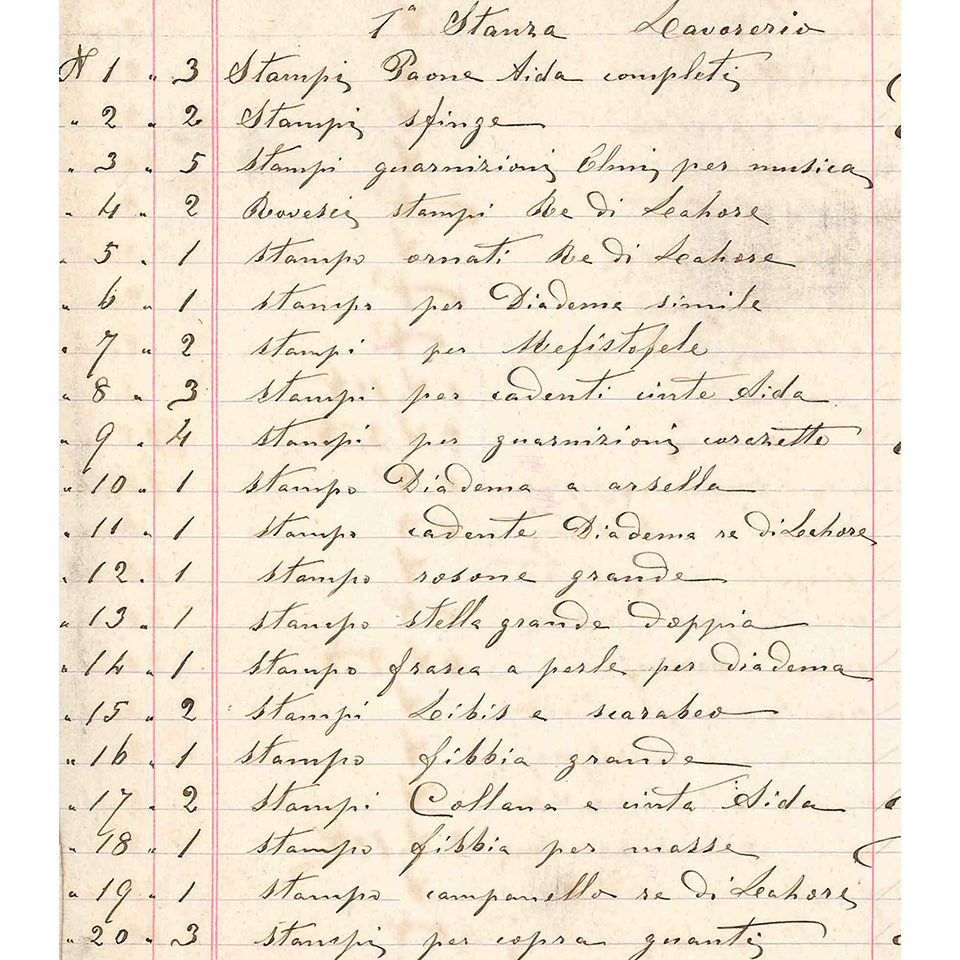 1ª Stanza Lavorerio
N 1 " 3 Stampi Paone Aida completi
" 2 " 2 Stampi sfinge
" 3 " 5 stampi guarnizioni Elmi per musica
" 4 " 2 Rovesci stampi Re di Leahore
" 5 " 1 stampo ornati Re di Leahore
" 6 " 1 stampo per Diadema simile
" 7 " 2 stampi per Mefistofele
" 8 " 3 stampi per cadenti cinte Aida
" 9 " 4 stampi per guarnizioni corazzette
" 10 " 1 stampo Diadema a arsella
" 11 " 1 stampo cadente Diadema re di Leahore
" 12 " 1 stampo rosone grande
" 13 " 1 stampo stella grande doppia
" 14 " 1 stampo frasca a perle per diadema
" 15 " 2 stampi Libis e scarabeo
" 16 " 1 stampo fibbia grande
" 17 " 2 stampi Collana e cinta Aida
" 18 " 1 stampo fibbia per masse
" 19 " 1 stampo campanello re di Leahore
" 20 " 3 stampi per copra guanti